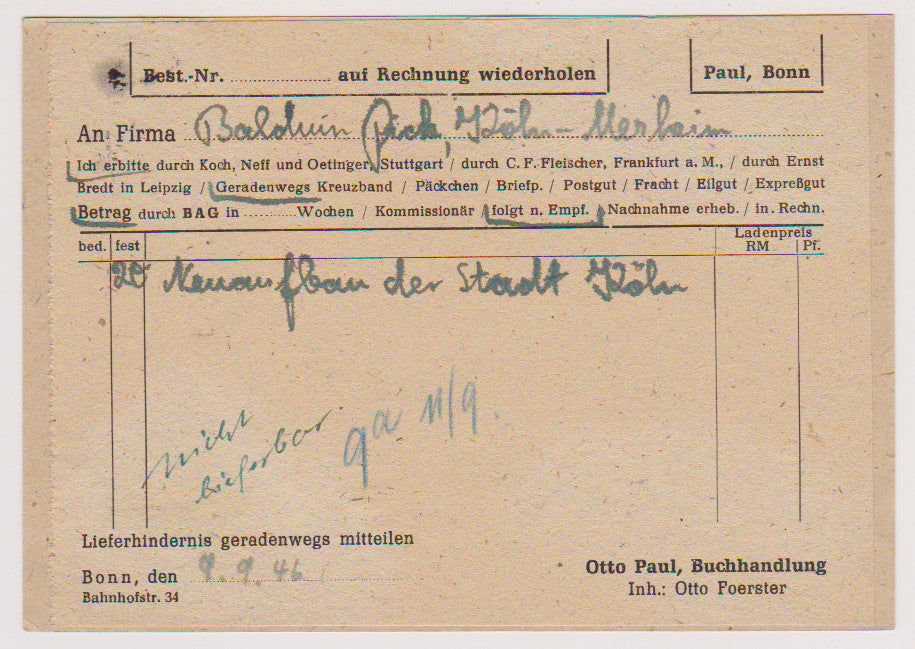 Best.-Nr. .................... auf Rechnung wiederholen
Paul, Bonn
An Firma Balduin Pick, Köln-Merheim
Ich erbitte durch Koch, Neff und Oetinger, Stuttgart / durch C. F. Fleischer, Frankfurt a. M., / durch Ernst
Bredt in Leipzig / Geradenwegs Kreuzband / Päckchen / Briefp. / Postgut / Fracht / Eilgut / Expreßgut
Betrag durch BAG in ............ Wochen / Kommissionär / folgt n. Empf. / Nachnahme erheb. / in. Rechn.
bed. fest Ladenpreis
RM Pf.
20 Neuaufbau der Stadt Köln
nicht
lieferbar
11/9.
Lieferhindernis geradenwegs mitteilen
Bonn, den 9.9.46
Bahnhofstr. 34
Otto Paul, Buchhandlung
Inh.: Otto Foerster